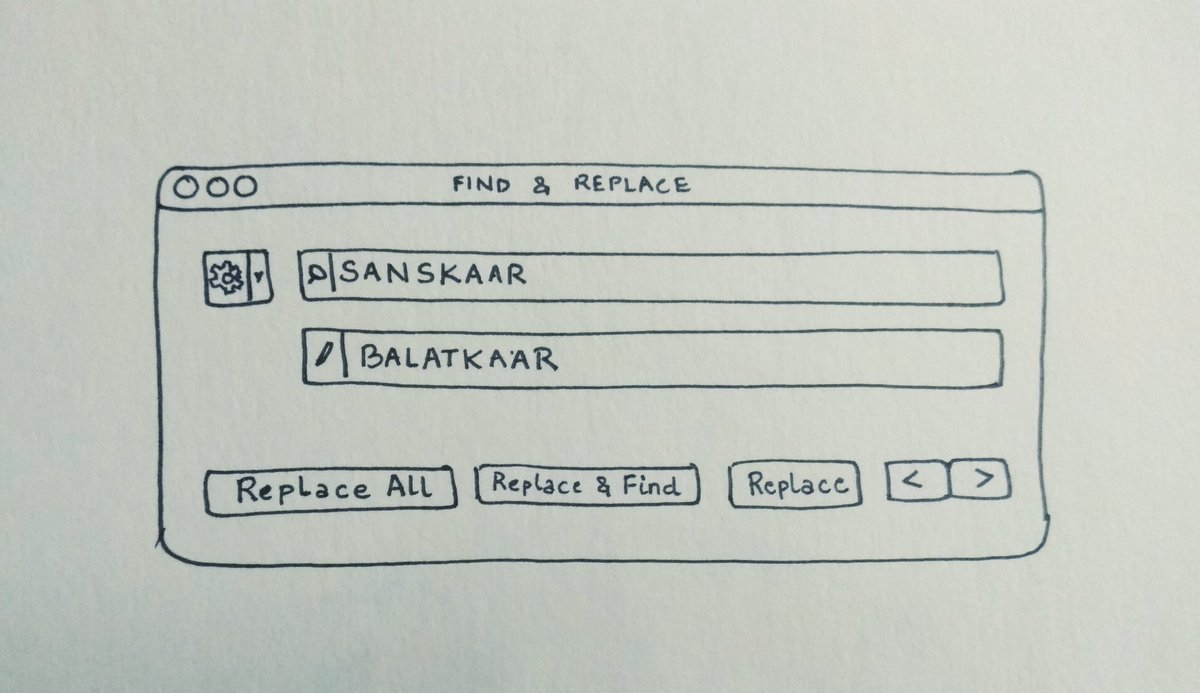 FIND & REPLACE
SANSKAAR
BALATKAAR
Replace All Replace & Find Replace < >